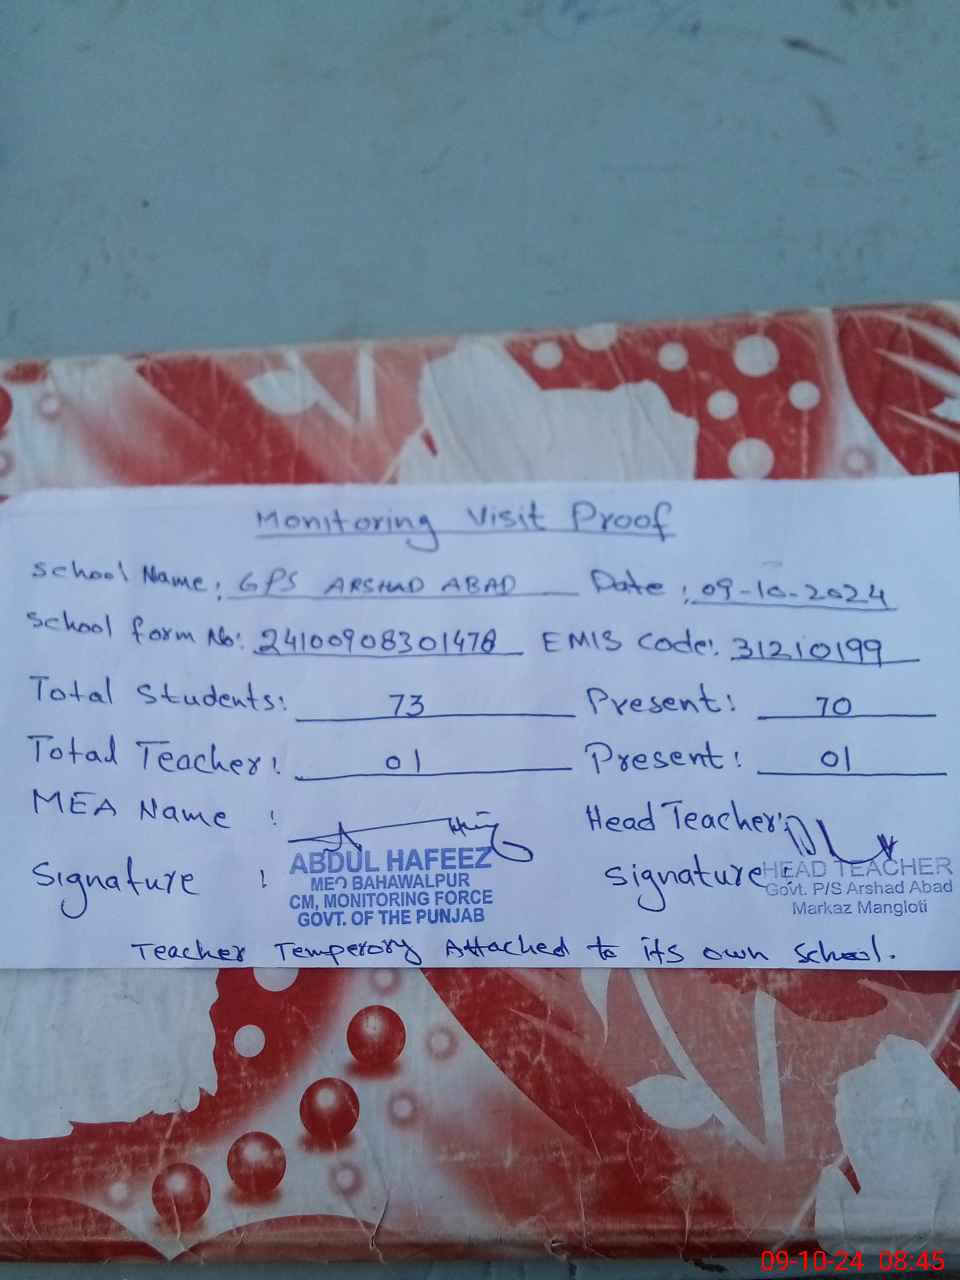 Monitoring Visit Proof
School Name: GPS ARSHAD ABAD Date: 09-10-2024
School form No: 24100908301478 EMIS Code: 31210199
Total Students: 73 Present: 70
Total Teacher: 01 Present: 01
MEA Name : Head Teacher:
Signature : Signature:
ABDUL HAFEEZ
MEO BAHAWALPUR
CM, MONITORING FORCE
GOVT. OF THE PUNJAB
HEAD TEACHER
Govt. P/S Arshad Abad
Markaz Mangloti
Teacher Temperory Attached to its own School.
09-10-24 08:45